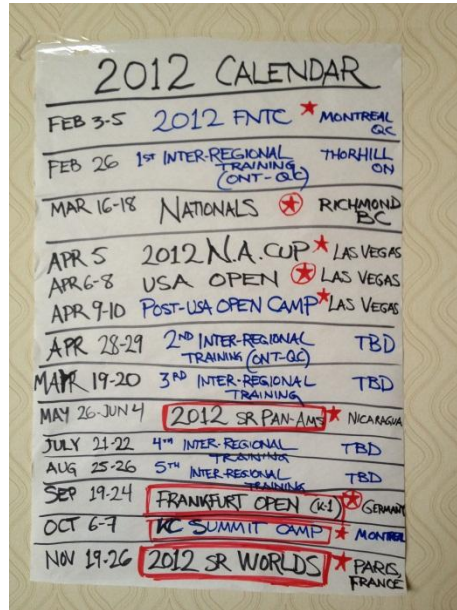 2012 CALENDAR
FEB 3-5 2012 FNTC MONTREAL QC
FEB 26 1ST INTER-REGIONAL TRAINING (ONT-QC) THORHILL ON
MAR 16-18 NATIONALS RICHMOND BC
APR 5 2012 N.A. CUP LAS VEGAS
APR 6-8 USA OPEN LAS VEGAS
APR 9-10 POST-USA OPEN CAMP LAS VEGAS
APR 28-29 2ND INTER-REGIONAL TRAINING (ONT-QC) TBD
19-20 3RD INTER-REGIONAL TRAINING TBD
MAY 26-JUN 4 2012 SR PAN-AMS NICARAGUA
JULY 21-22 4TH INTER-REGIONAL TRAINING TBD
AUG 25-26 5TH INTER-REGIONAL TRAINING TBD
SEP 19-24 FRANKFURT OPEN (K-1) GERMANY
OCT 6-7 KC SUMMIT CAMP MONTREAL
NOV 19-26 2012 SR WORLDS PARIS, FRANCE